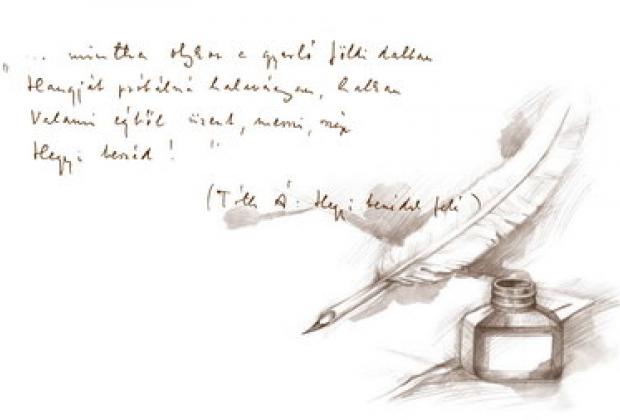 "... mintha olykor e gyarló földi dalban
Hangját próbálná halaványan, halkan
Valami égből üzent, messzi, szép
Hegyi beszéd! "
(Tóth Á: Hegyi beszédek felé)